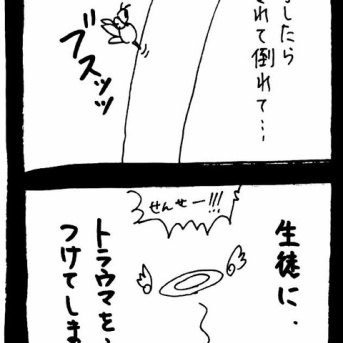 したら
れて倒れて…
ブスッッ
生徒に、
せんせー!!!
トラウマを、
つけてしま